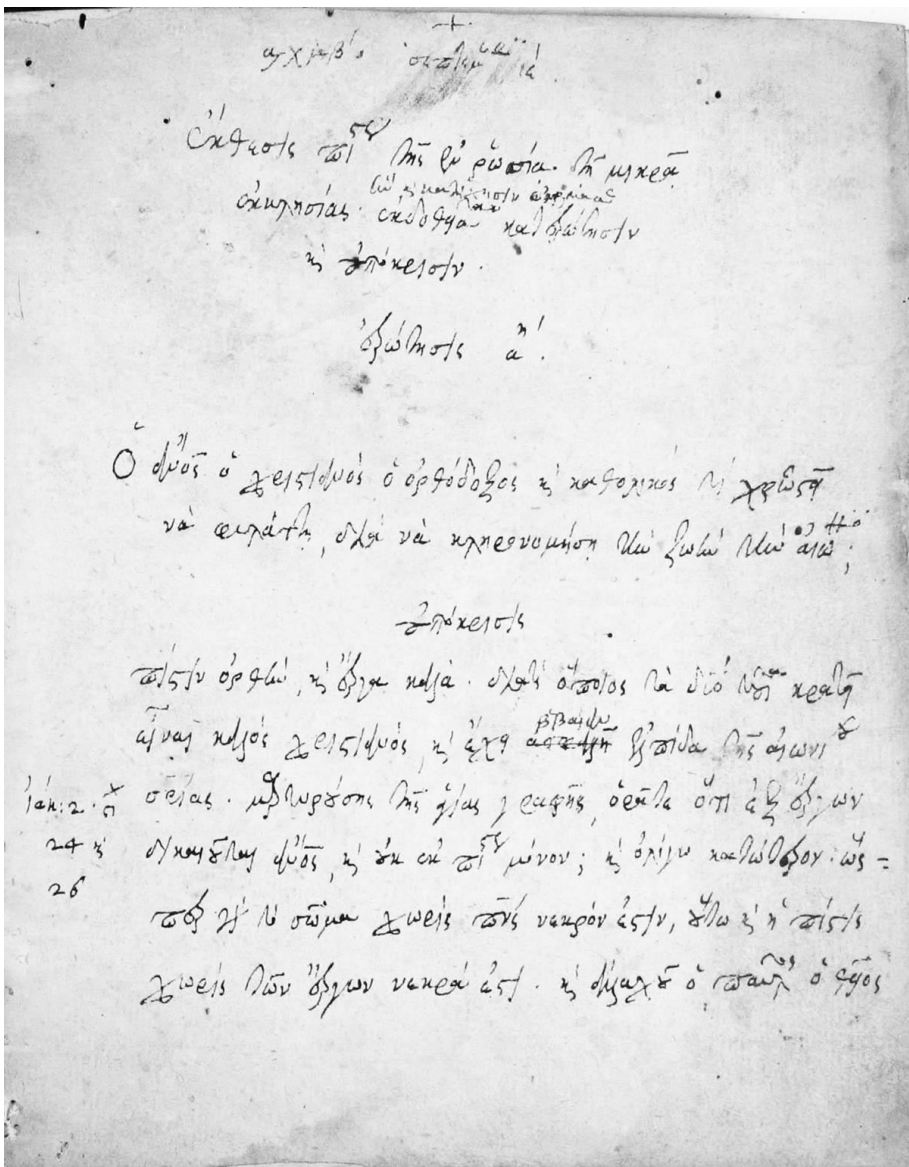 +
αχμβ΄. σεπτεμ ια΄
Ἔκθεσις πίστεως τῆς ἐν ῥωσίᾳ τῇ μικρᾷ
ἐκκλησίας ἐκδοθεῖσα κατ' ἐρώτησιν
κ̀ ἀπόκρισιν.
ἐρώτησις αη΄.
Ὁ ἄνος ὁ χριστιανὸς ὁ ὀρθόδοξος κ̀ καθολικὸς τί χρεωστεῖ
νὰ φυλάττῃ, διὰ νὰ κληρονομήσῃ τὴν ζωὴν τὴν αἰώ;
ἀπόκρισις
πίστιν ὀρθὴν, κ̀ ἔργα καλά. διατὶ ὅποιος τὰ δύο κρατεῖ
εἶναι καλὸς χριστιανὸς, κ̀ ἔχει βεβαίαν ἐλπίδα τῆς αἰωνίου
σρίας. μαρτυρούσης τῆς ἁγίας γραφῆς, ὁρᾶτε ὅτι ἐξ ἔργων
δικαιοῦται ἄνος, κ̀ οὐκ ἐκ πίστεως μόνον; κ̀ ὀλίγω κατώτερον: ὥσ=
περ γὰρ τὸ σῶμα χωρὶς πνς νεκρόν ἐστιν, οὕτω κ̀ ἡ πίστις
χωρὶς τῶν ἔργων νεκρά ἐστι. κ̀ ἀλλαχοῦ ὁ παῦλος ὁ θεῖος
ἰάκ: 2.
24 κ̀
26